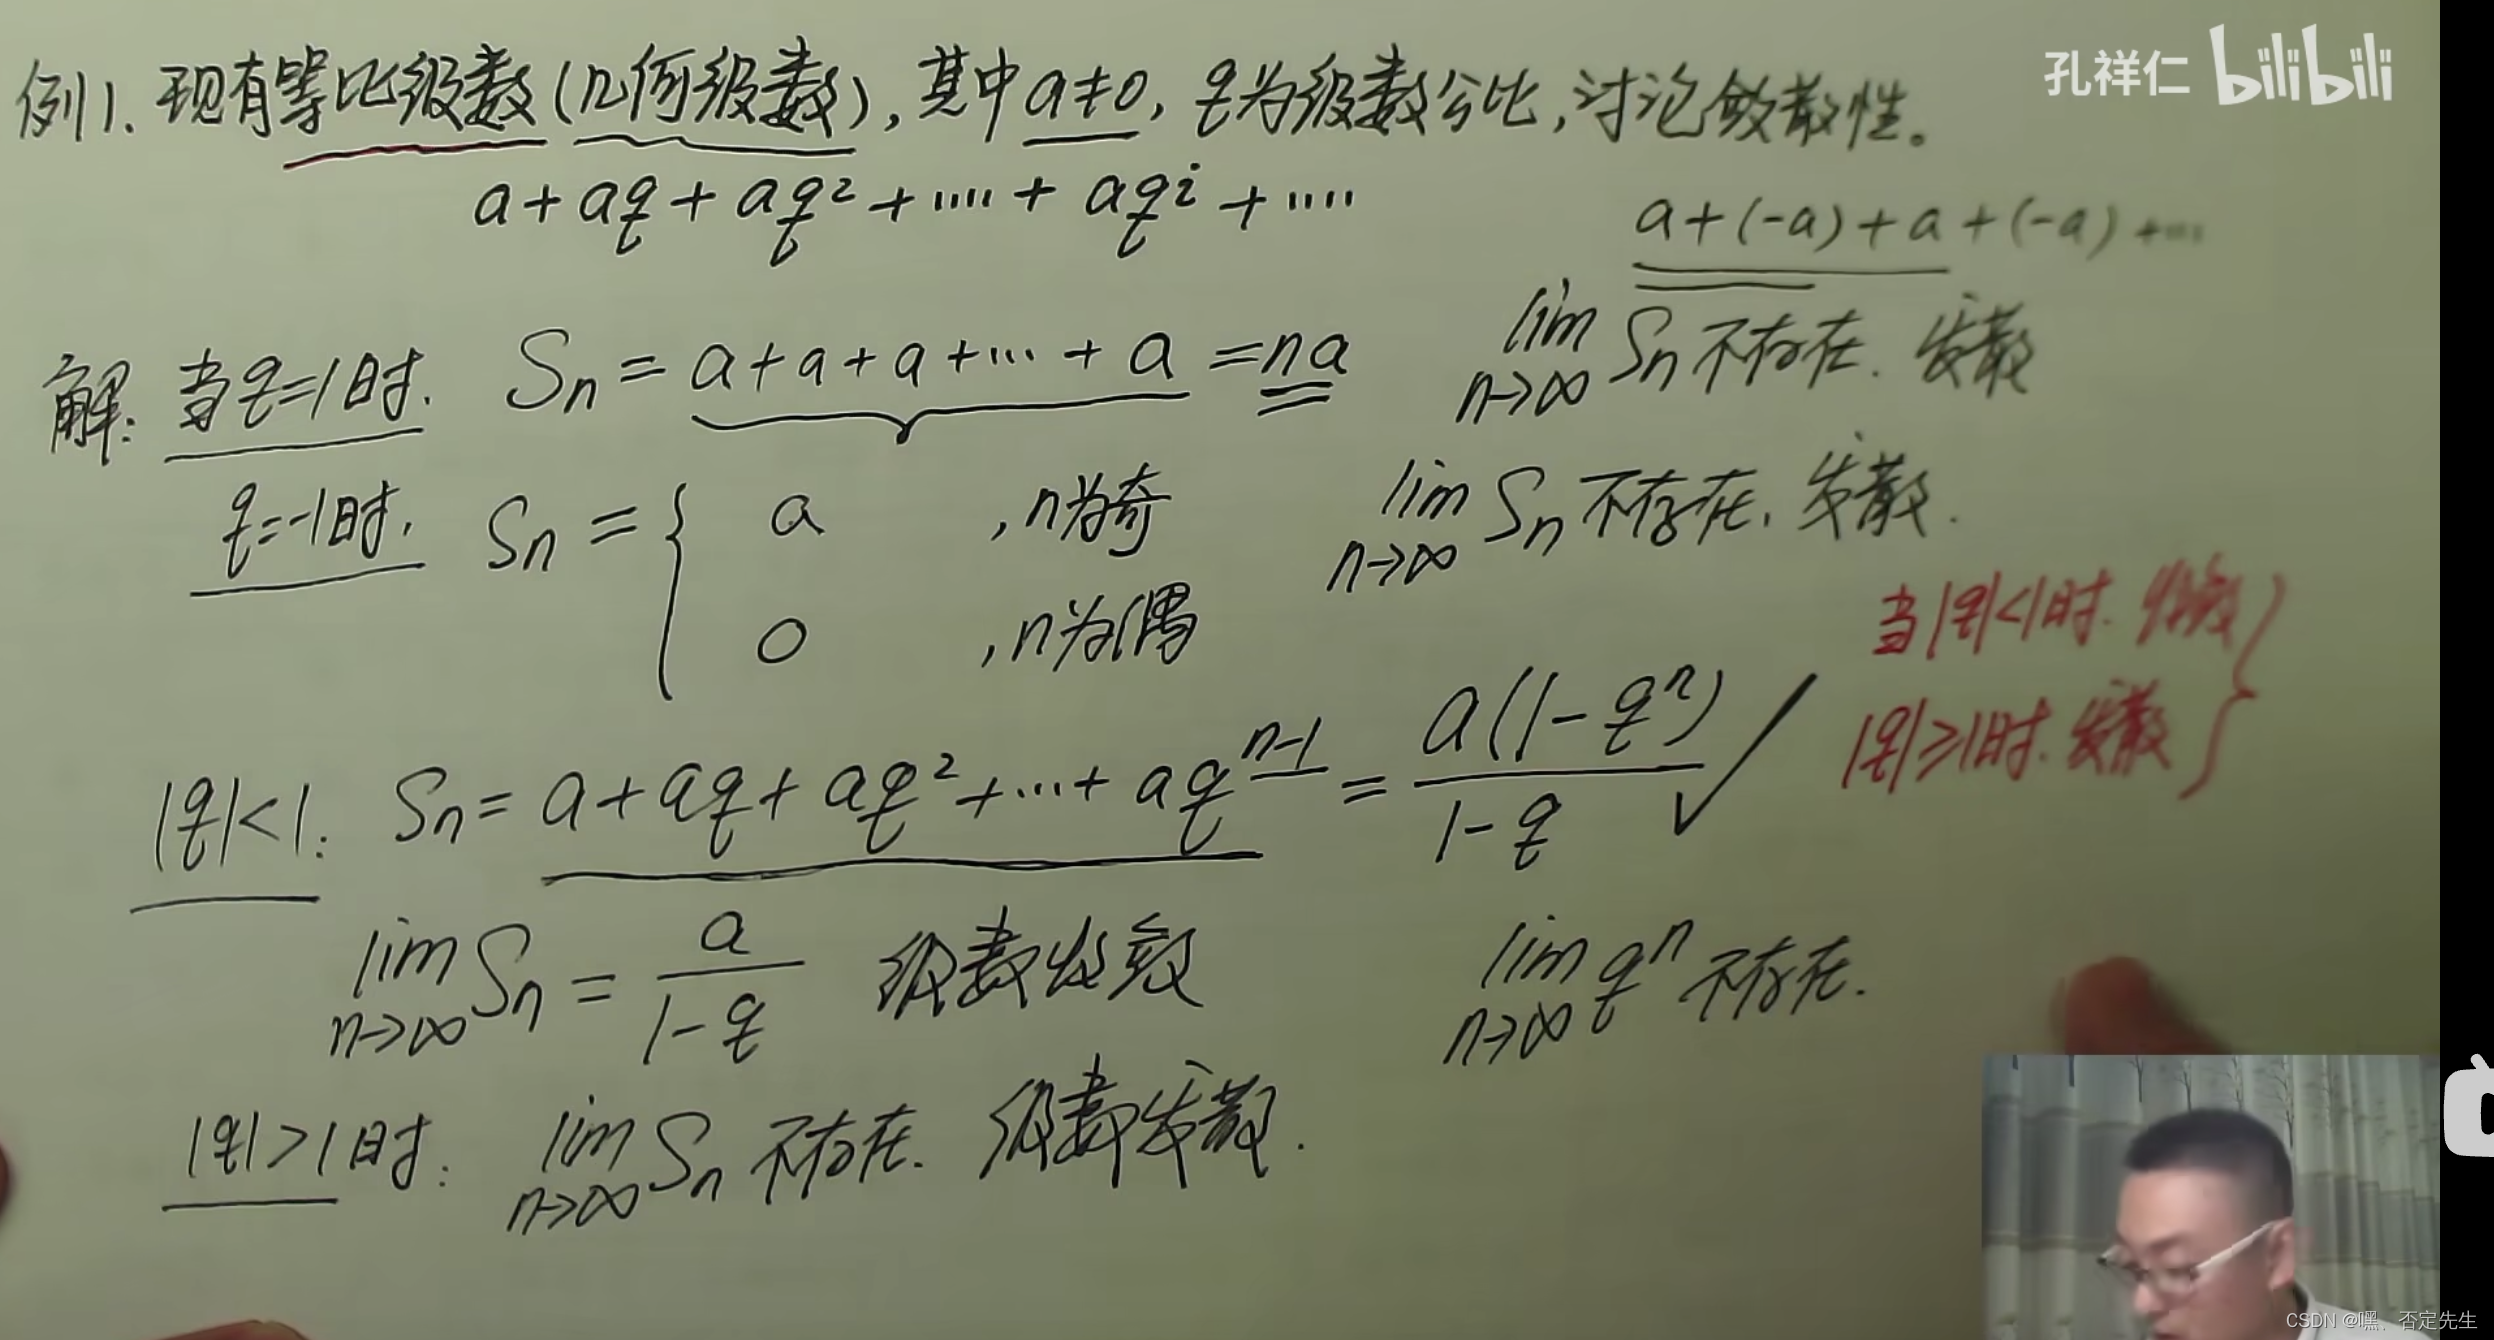 孔祥仁 bilibili
例1. 现有等比级数(几何级数), 其中a≠0, q为级数公比, 讨论敛散性。
a + aq + aq² + ···· + aqⁱ + ····
a + (-a) + a + (-a) + ····
解: 当q=1时. Sn = a + a + a + ··· + a = na lim n→∞ Sn 不存在. 发散
q=-1时, Sn = { a , n为奇 lim n→∞ Sn 不存在, 发散.
0 , n为偶
当|q|<1时. 收敛
|q|≥1时. 发散 }
|q|<1: Sn = a + aq + aq² + ··· + aqⁿ⁻¹ = a(1-qⁿ) / 1-q ✓
lim n→∞ Sn = a / 1-q 级数收敛 lim n→∞ qⁿ 不存在.
|q|>1时: lim n→∞ Sn 不存在. 级数发散.
CSDN @嘿、否定先生